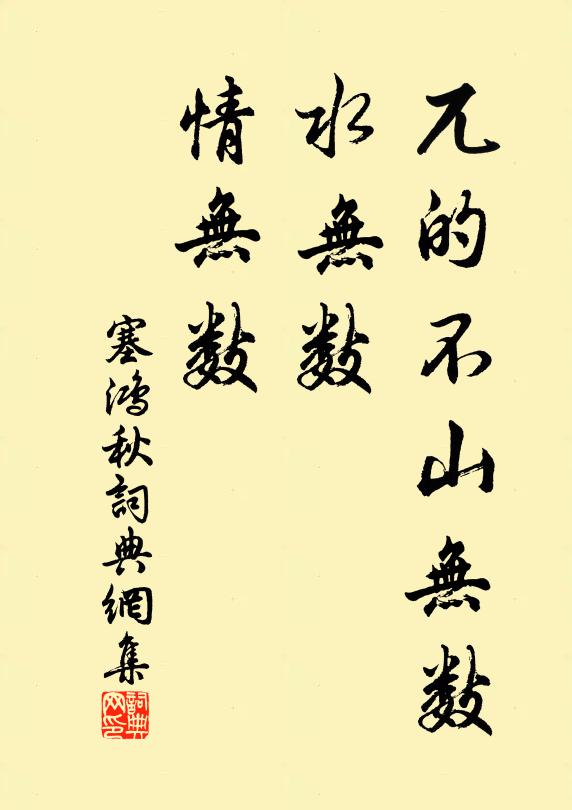 兀的不山無數
水無數
情無數
塞鴻秋詞典網集
詞典
网印